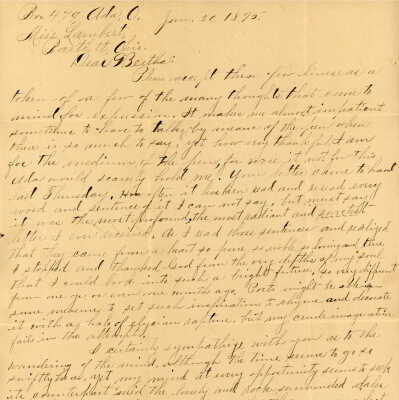 Box 479, Ada, O. Jan. 20 1895.
Miss Lambert,
Ohio.
Dear Bertha:
Please accept these few lines as a
token of a few of the many thoughts that come to
mind for expression. It makes me almost impatient
sometimes to have to talk by means of the pen when
there is so much to say. Yet how very thankful I am
for the medium of the pen, for were it not for this
Ada would scarcely hold me. Your letter came to hand
last Thursday. How often it has been read and reread every
word and sentence of it I can not say, but must say
it was the most profound, the most radiant and sweetest
letter I ever received. As I read those sentences and realized
that they came from a heart so pure, so noble so loving and true
I stopped and thanked God from the very depths of my soul
that I could look into such a bright future, so very different
from one year or even one month ago. Poets might be able in
some measure to set such inspirations to rhyme and decorate
it with a halo of elysian rapture, but my crude imagination
fails in the attempt.
I certainly sympathize with you as to the
wandering of the mind. Although the time seems to go so
swiftly by us, yet my mind at every opportunity seems to seek
its counterpart amid the lovely and rock-surrounded